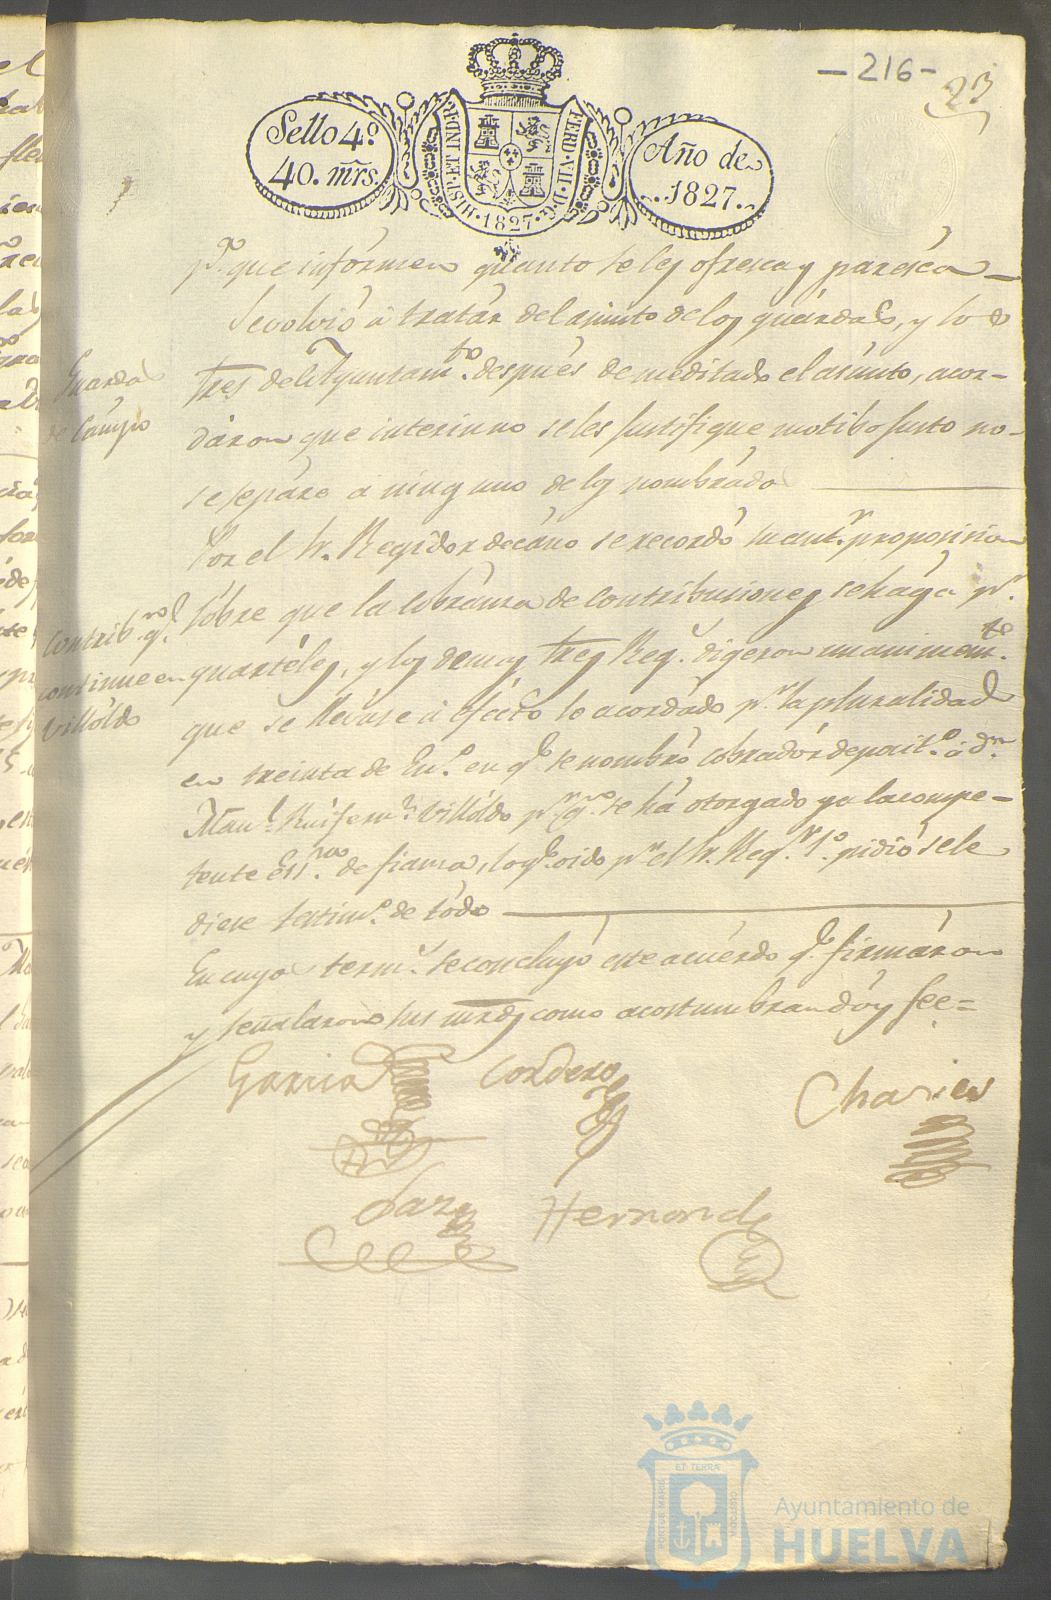 - 216 -
23
Sello 4º
40. mrs.
HISP. ET INDER.
FERD. VII. D. G.
1827
Año de
1827.
pª. que informen quanto se les ofresca y paresca
Se volvió á tratar del asunto de los guardas, y los
Guardas
de Campo
tres del Ayuntamto. despues de meditado el asunto, acor-
daron que interin no se les justifique motibo justo no
se separe á ninguno de los nombrados
Por el Sr. Regidor decano se recordó su antr. proposicion
sobre que la cobranza de contribuciones se haga pr.
Contribnes. qe.
continue en
Villoldo
quarteles, y los demas tres Regs. digeron unanimemte.
que se llevase á efecto lo acordado pr. la pluralidad
en treinta de Enº. en qe. se nombró cobrador deposit.º á dn.
Manl. Villoldo pr. qn. se há otorgado ya la compe-
tente Essra. de fianza, lo qe. oido pr. el Sr. Regr. 1º. pidió se le
diese testimº. de todo
En cuyos terms. se concluyó este acuerdo qe. firmaron
y señalaron sus mrds. como acostumbran doy fee=
Garcia
Cordero
Charies
Saez
Hernandz
PORTUS MARIS
ET TERRÆ
CUSTODIA
Ayuntamiento de
HUELVA